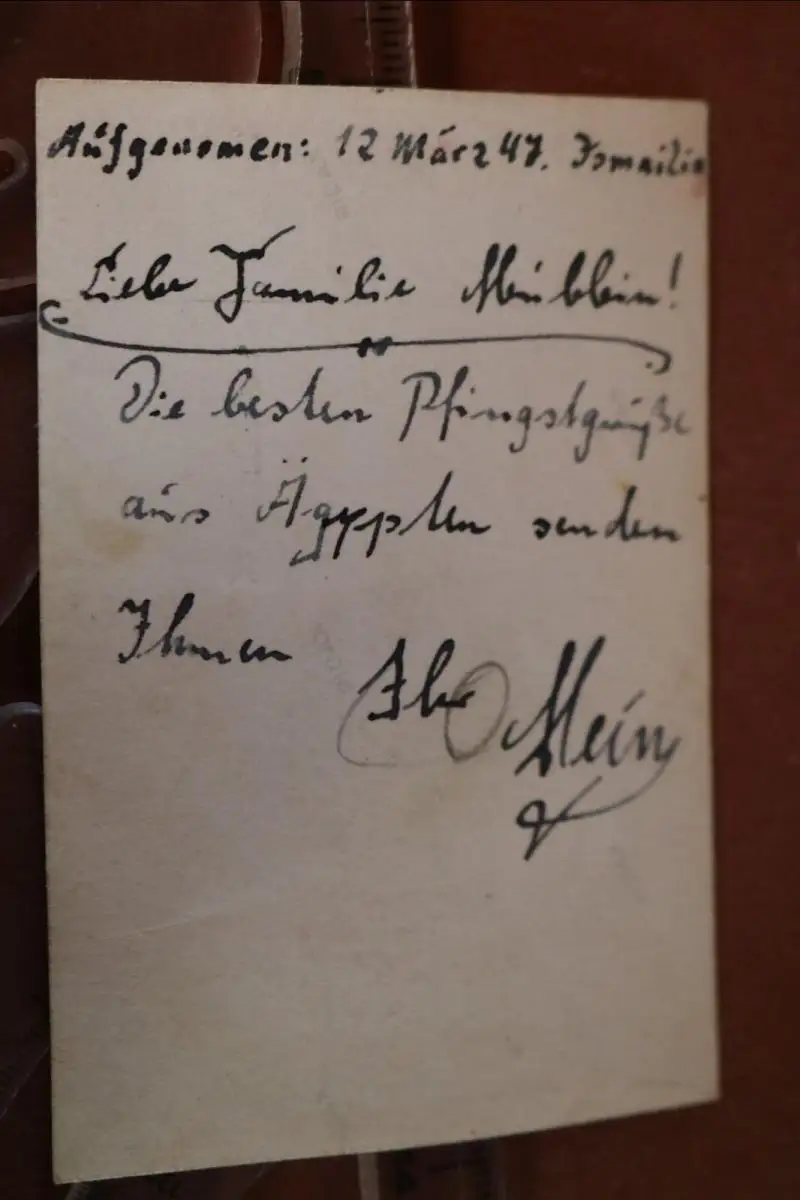 Aufgenomen: 12 März 47. Ismailia
Liebe Familie
Die besten Pfingstgrüße
aus Ägypten senden
Ihnen
Ihr